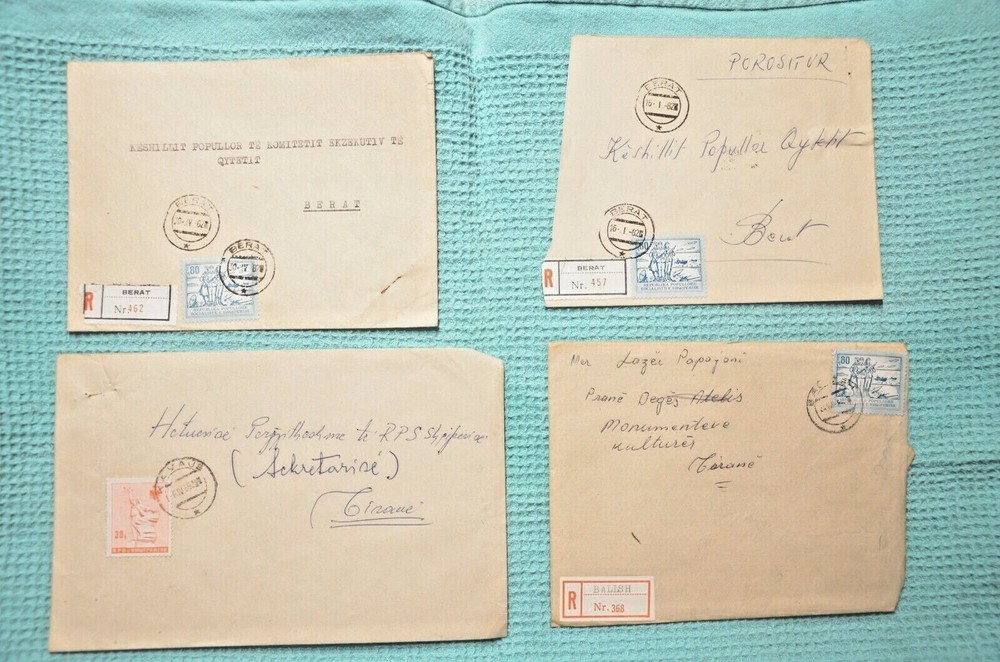 KËSHILLIT POPULLOR TË KOMITETIT EKZEKUTIV TË
QYTETIT
BERAT
BERAT
BERAT
80
R
BERAT
Nr. 462
POROSITUR
BERAT
16-I-82
Këshillit Popullor Qytetit
Berat
BERAT
16-I-82
80
R
BERAT
Nr. 457
REPUBLIKA POPULLORE
SOCIALISTE E SHQIPERISE
Hetuesisë Përgjithshme të RPS Shqiperise
(Sekretarisë)
Tiranë
KAVAJE
30
Mer Lazër Papajani
Pranë Degës Atelis
Monumenteve
kulturës
Tiranë
80
R
BALISH
Nr. 368